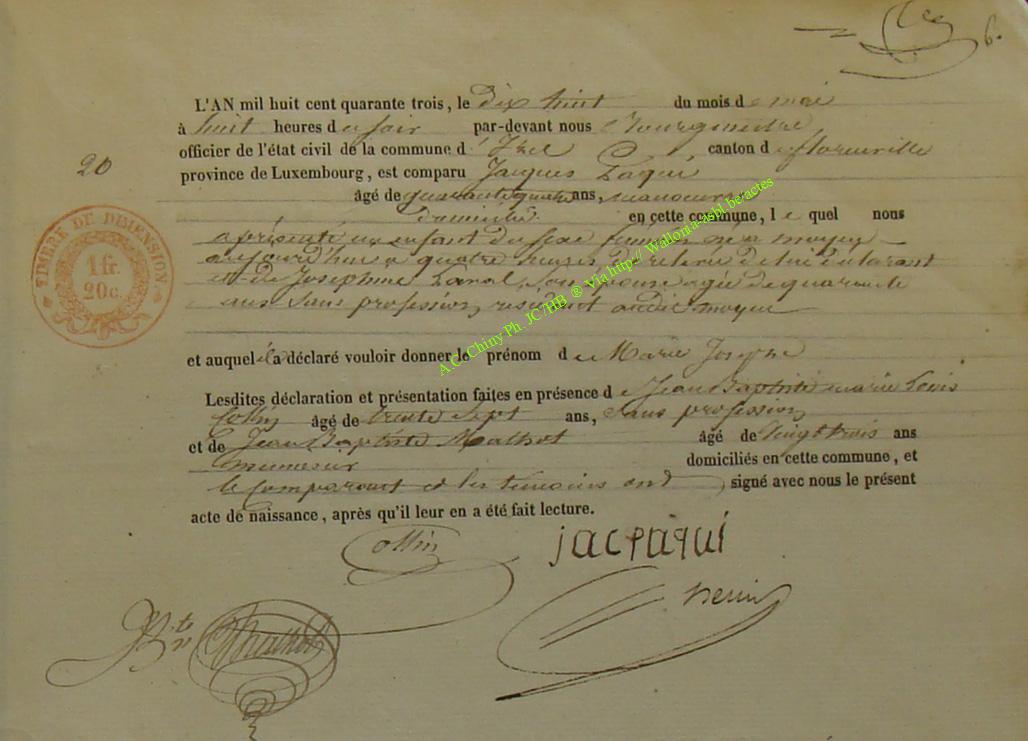 6.
L'AN mil huit cent quarante trois, le dix huit du mois de mai
à huit heures du soir par-devant nous Bourgmestre,
officier de l'état civil de la commune d'Izel canton de florenville
province de Luxembourg, est comparu Jacques Paqui
âgé de quarante quatre ans, manoeuvre
domicilié en cette commune, le quel nous
a présenté un enfant du sexe féminin né à moyen
aujourd'hui à quatre heures de relevée de lui déclarant
et de Josephine Lanol, son épouse agée de quarante
ans sans profession, residant audit moyen
et auquel il a déclaré vouloir donner le prénom de Marie Josephe
Lesdites déclaration et présentation faites en présence de Jean Baptiste marie Louis
Collin âgé de trente sept ans, sans profession
et de Jean Baptiste Mathot âgé de vingt trois ans
domiciliés en cette commune, et
le Comparant et les temoins ont signé avec nous le présent
acte de naissance, après qu'il leur en a été fait lecture.
20
TIMBRE DE DIMENSION
1 fr.
20 c.
A.C. Chiny Ph. JC/HB ® Via http:// Wallonia-asbl.be/actes
Collin
jacpaqui
Jn Bte Mathot